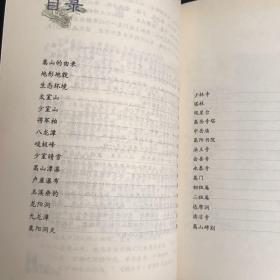 目录
嵩山的由来
地形地貌
生态环境
太室山
少室山
将军柏
八龙潭
峻极峰
少室晴雪
嵩山潭瀑
卢崖瀑布
玉溪垂钓
龙阳洞
九龙潭
嵩阳洞天
少林寺
塔林
观星台
嵩岳寺塔
中岳庙
嵩阳书院
法王寺
会善寺
永泰寺
嵩门
初祖庵
二祖庵
达摩洞
清凉寺
嵩山碑刻